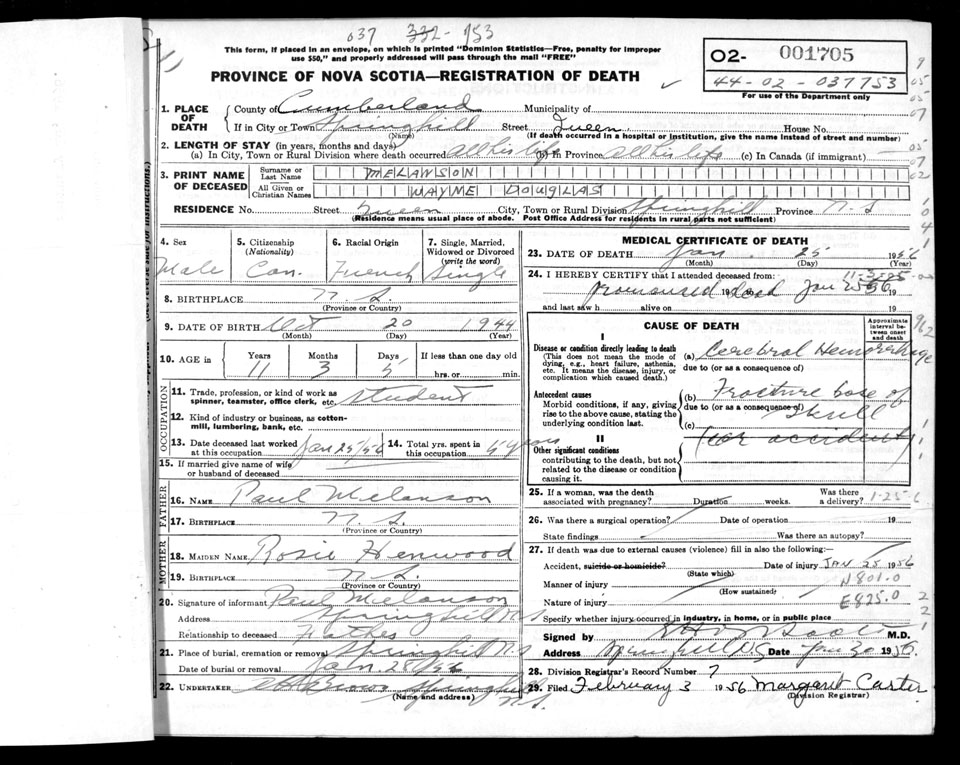 037 332- 753
This form, if placed in an envelope, on which is printed "Dominion Statistics—Free, penalty for improper
use $50," and properly addressed will pass through the mail "FREE"
PROVINCE OF NOVA SCOTIA—REGISTRATION OF DEATH
02- 001705
44-02-037753
For use of the Department only
1. PLACE OF DEATH
County of Cumberland Municipality of
If in City or Town Springhill Street Queen House No.
(Name) (If death occurred in a hospital or institution, give the name instead of street and number)
2. LENGTH OF STAY (in years, months and days)
(a) In City, Town or Rural Division where death occurred all his life (b) In Province all his life (c) In Canada (if immigrant) —
3. PRINT NAME OF DECEASED
Surname or Last Name MELANSON
All Given or Christian Names WAYNE DOUGLAS
RESIDENCE No. Street Queen City, Town or Rural Division Springhill Province N.S
(Residence means usual place of abode. Post Office Address for residents in rural parts not sufficient)
4. Sex 5. Citizenship (Nationality) 6. Racial Origin 7. Single, Married, Widowed or Divorced (write the word)
Male Can. French Single
8. BIRTHPLACE N.S.
(Province or Country)
9. DATE OF BIRTH Oct 20 1944
(Month) (Day) (Year)
10. AGE in Years Months Days If less than one day old
11 3 5 hrs. or min.
OCCUPATION
11. Trade, profession, or kind of work as
spinner, teamster, office clerk, etc. student
12. Kind of industry or business, as cotton-
mill, lumbering, bank, etc.
13. Date deceased last worked
at this occupation Jan 25/56
14. Total yrs. spent in
this occupation 5 years
15. If married give name of wife
or husband of deceased
FATHER
16. NAME Paul Melanson
17. BIRTHPLACE N.S.
(Province or Country)
MOTHER
18. MAIDEN NAME Rosie Henwood
19. BIRTHPLACE N.S.
(Province or Country)
20. Signature of informant Paul Melanson
Address Springhill N.S
Relationship to deceased Father
21. Place of burial, cremation or removal Springhill N.S
Date of burial or removal Jan 28/56
22. UNDERTAKER Springhill N.S.
(Name and address)
MEDICAL CERTIFICATE OF DEATH
23. DATE OF DEATH Jan. 25 1956
(Month) (Day) (Year)
24. I HEREBY CERTIFY that I attended deceased from:
pronounced dead Jan 25 56 19
and last saw h alive on 19
CAUSE OF DEATH
Approximate interval between onset and death
I
Disease or condition directly leading to death
(This does not mean the mode of
dying, e.g., heart failure, asthenia,
etc. It means the disease, injury, or
complication which caused death.)
(a) Cerebral Hemorrhage
due to (or as a consequence of)
Antecedent causes
Morbid conditions, if any, giving
rise to the above cause, stating the
underlying condition last.
(b) Fracture base of
due to (or as a consequence of) Skull
(c)
(car accident)
II
Other significant conditions
contributing to the death, but not
related to the disease or condition
causing it.
25. If a woman, was the death
associated with pregnancy? Duration weeks. Was there
a delivery? 1-25-6
26. Was there a surgical operation? Date of operation 19
State findings Was there an autopsy?
27. If death was due to external causes (violence) fill in also the following:—
Accident, suicide or homicide? Date of injury JAN 25 1956
(State which)
Manner of injury N801.0
(How sustained)
Nature of injury E825.0
Specify whether injury occurred in industry, in home, or in public place
Signed by M.D.
Address Springhill N.S Date Jan 30 1956.
28. Division Registrar's Record Number 7
29. Filed February 3 1956 Margaret Carter
(Division Registrar)